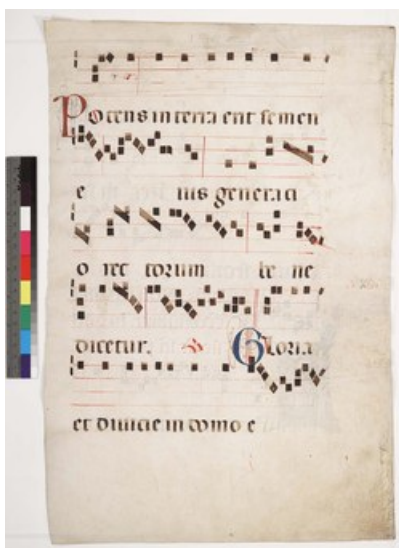 Potens in terra erit semen
e ius generaci
o rec torum be ne
dicetur. Gloria
et divicie in domo e